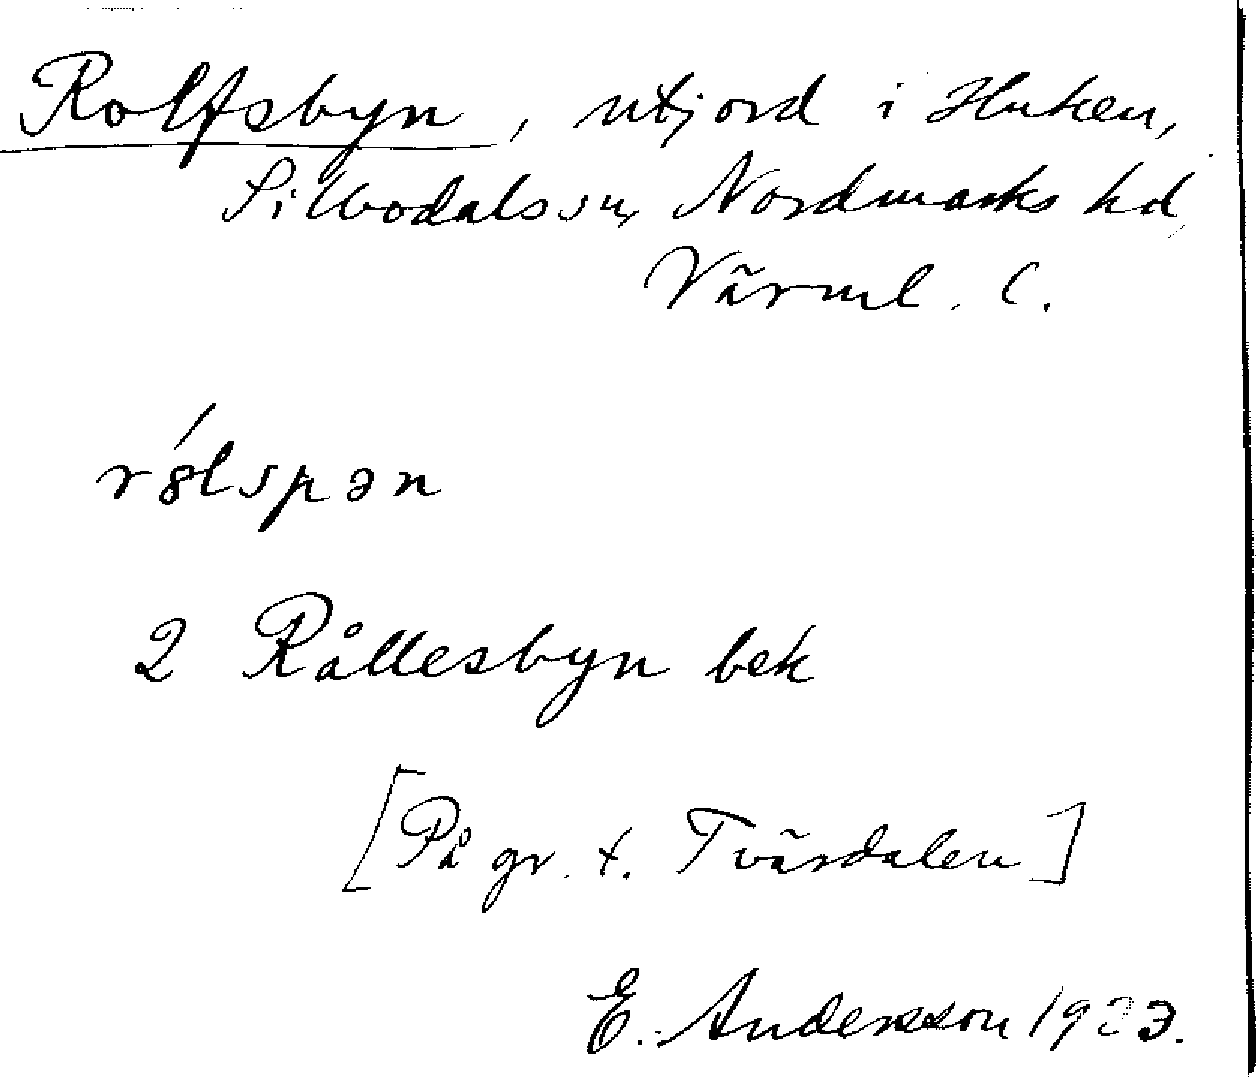 Rolfsbyn, utjord i Huken,
Silbodals sn, Nordmarks hd,
Värml. l.
rólspən
2 Rållesbyn bek
[På gr. t. Tvärdalen]
E. Andersson 1923.